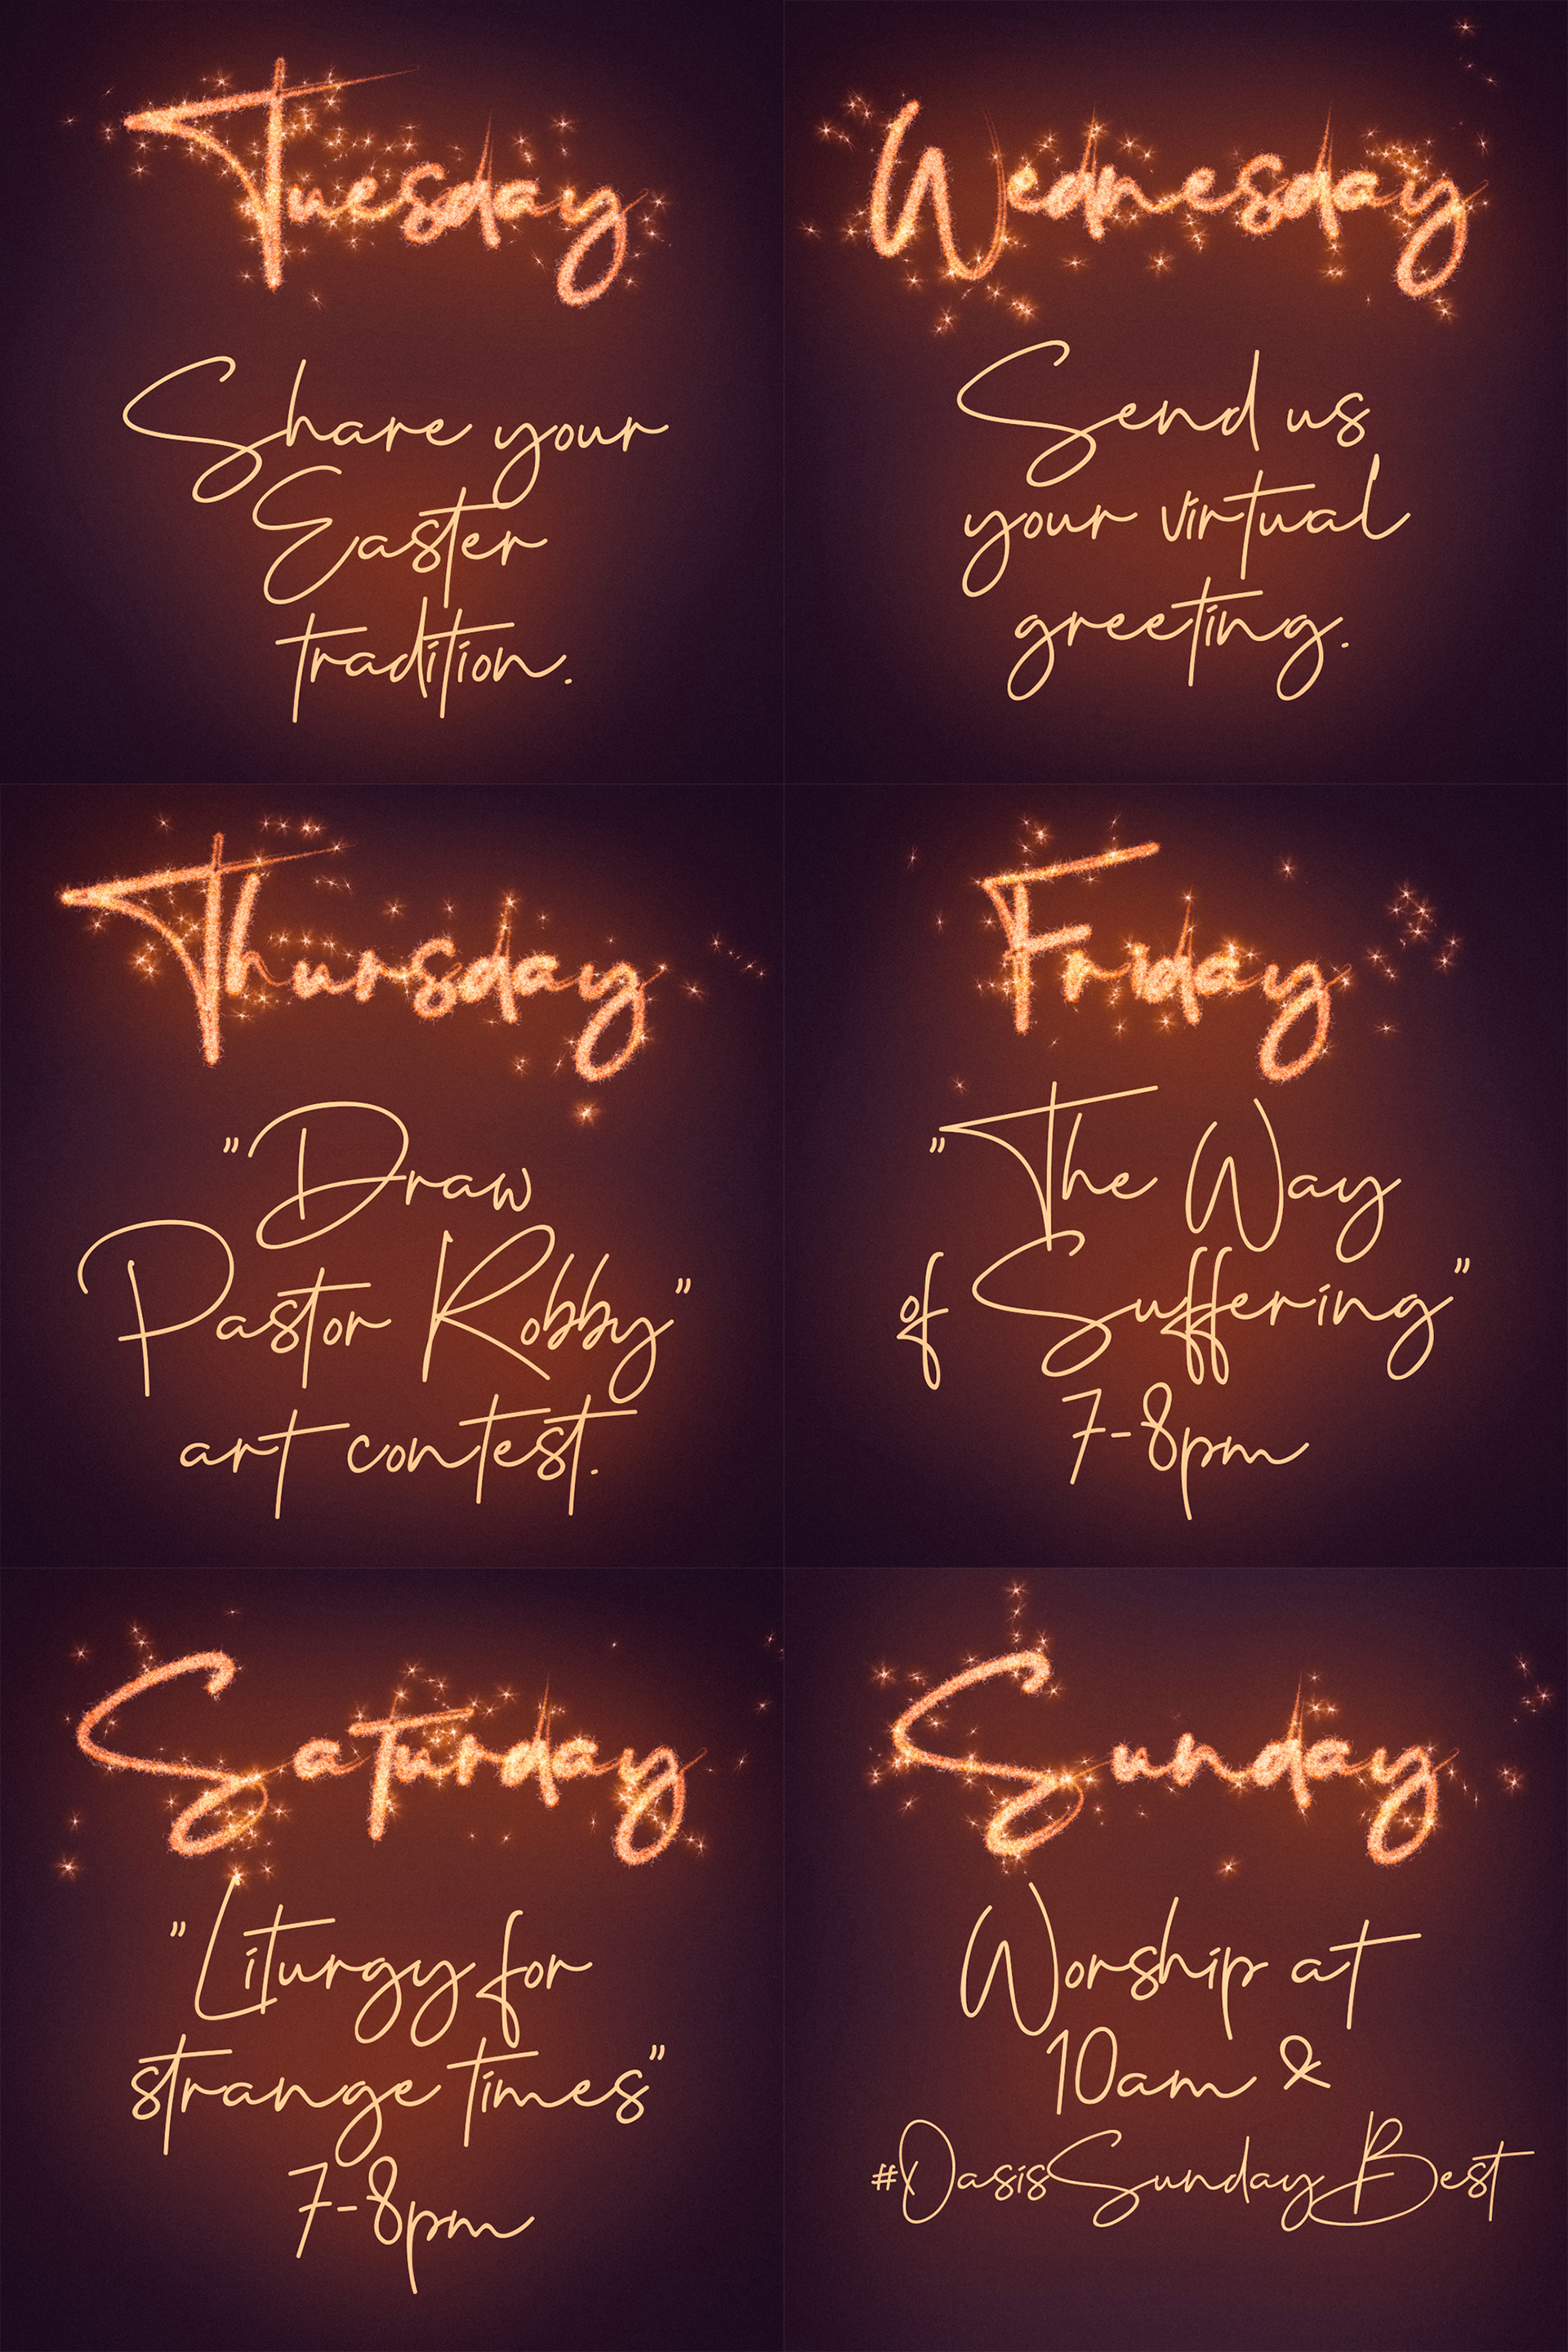 Tuesday
Share your
Easter
tradition.
Wednesday
Send us
your virtual
greeting.
Thursday
"Draw
Pastor Robby"
art contest.
Friday
"The Way
of Suffering"
7-8pm
Saturday
"Liturgy for
strange times"
7-8pm
Sunday
Worship at
10am &
#OasisSundayBest